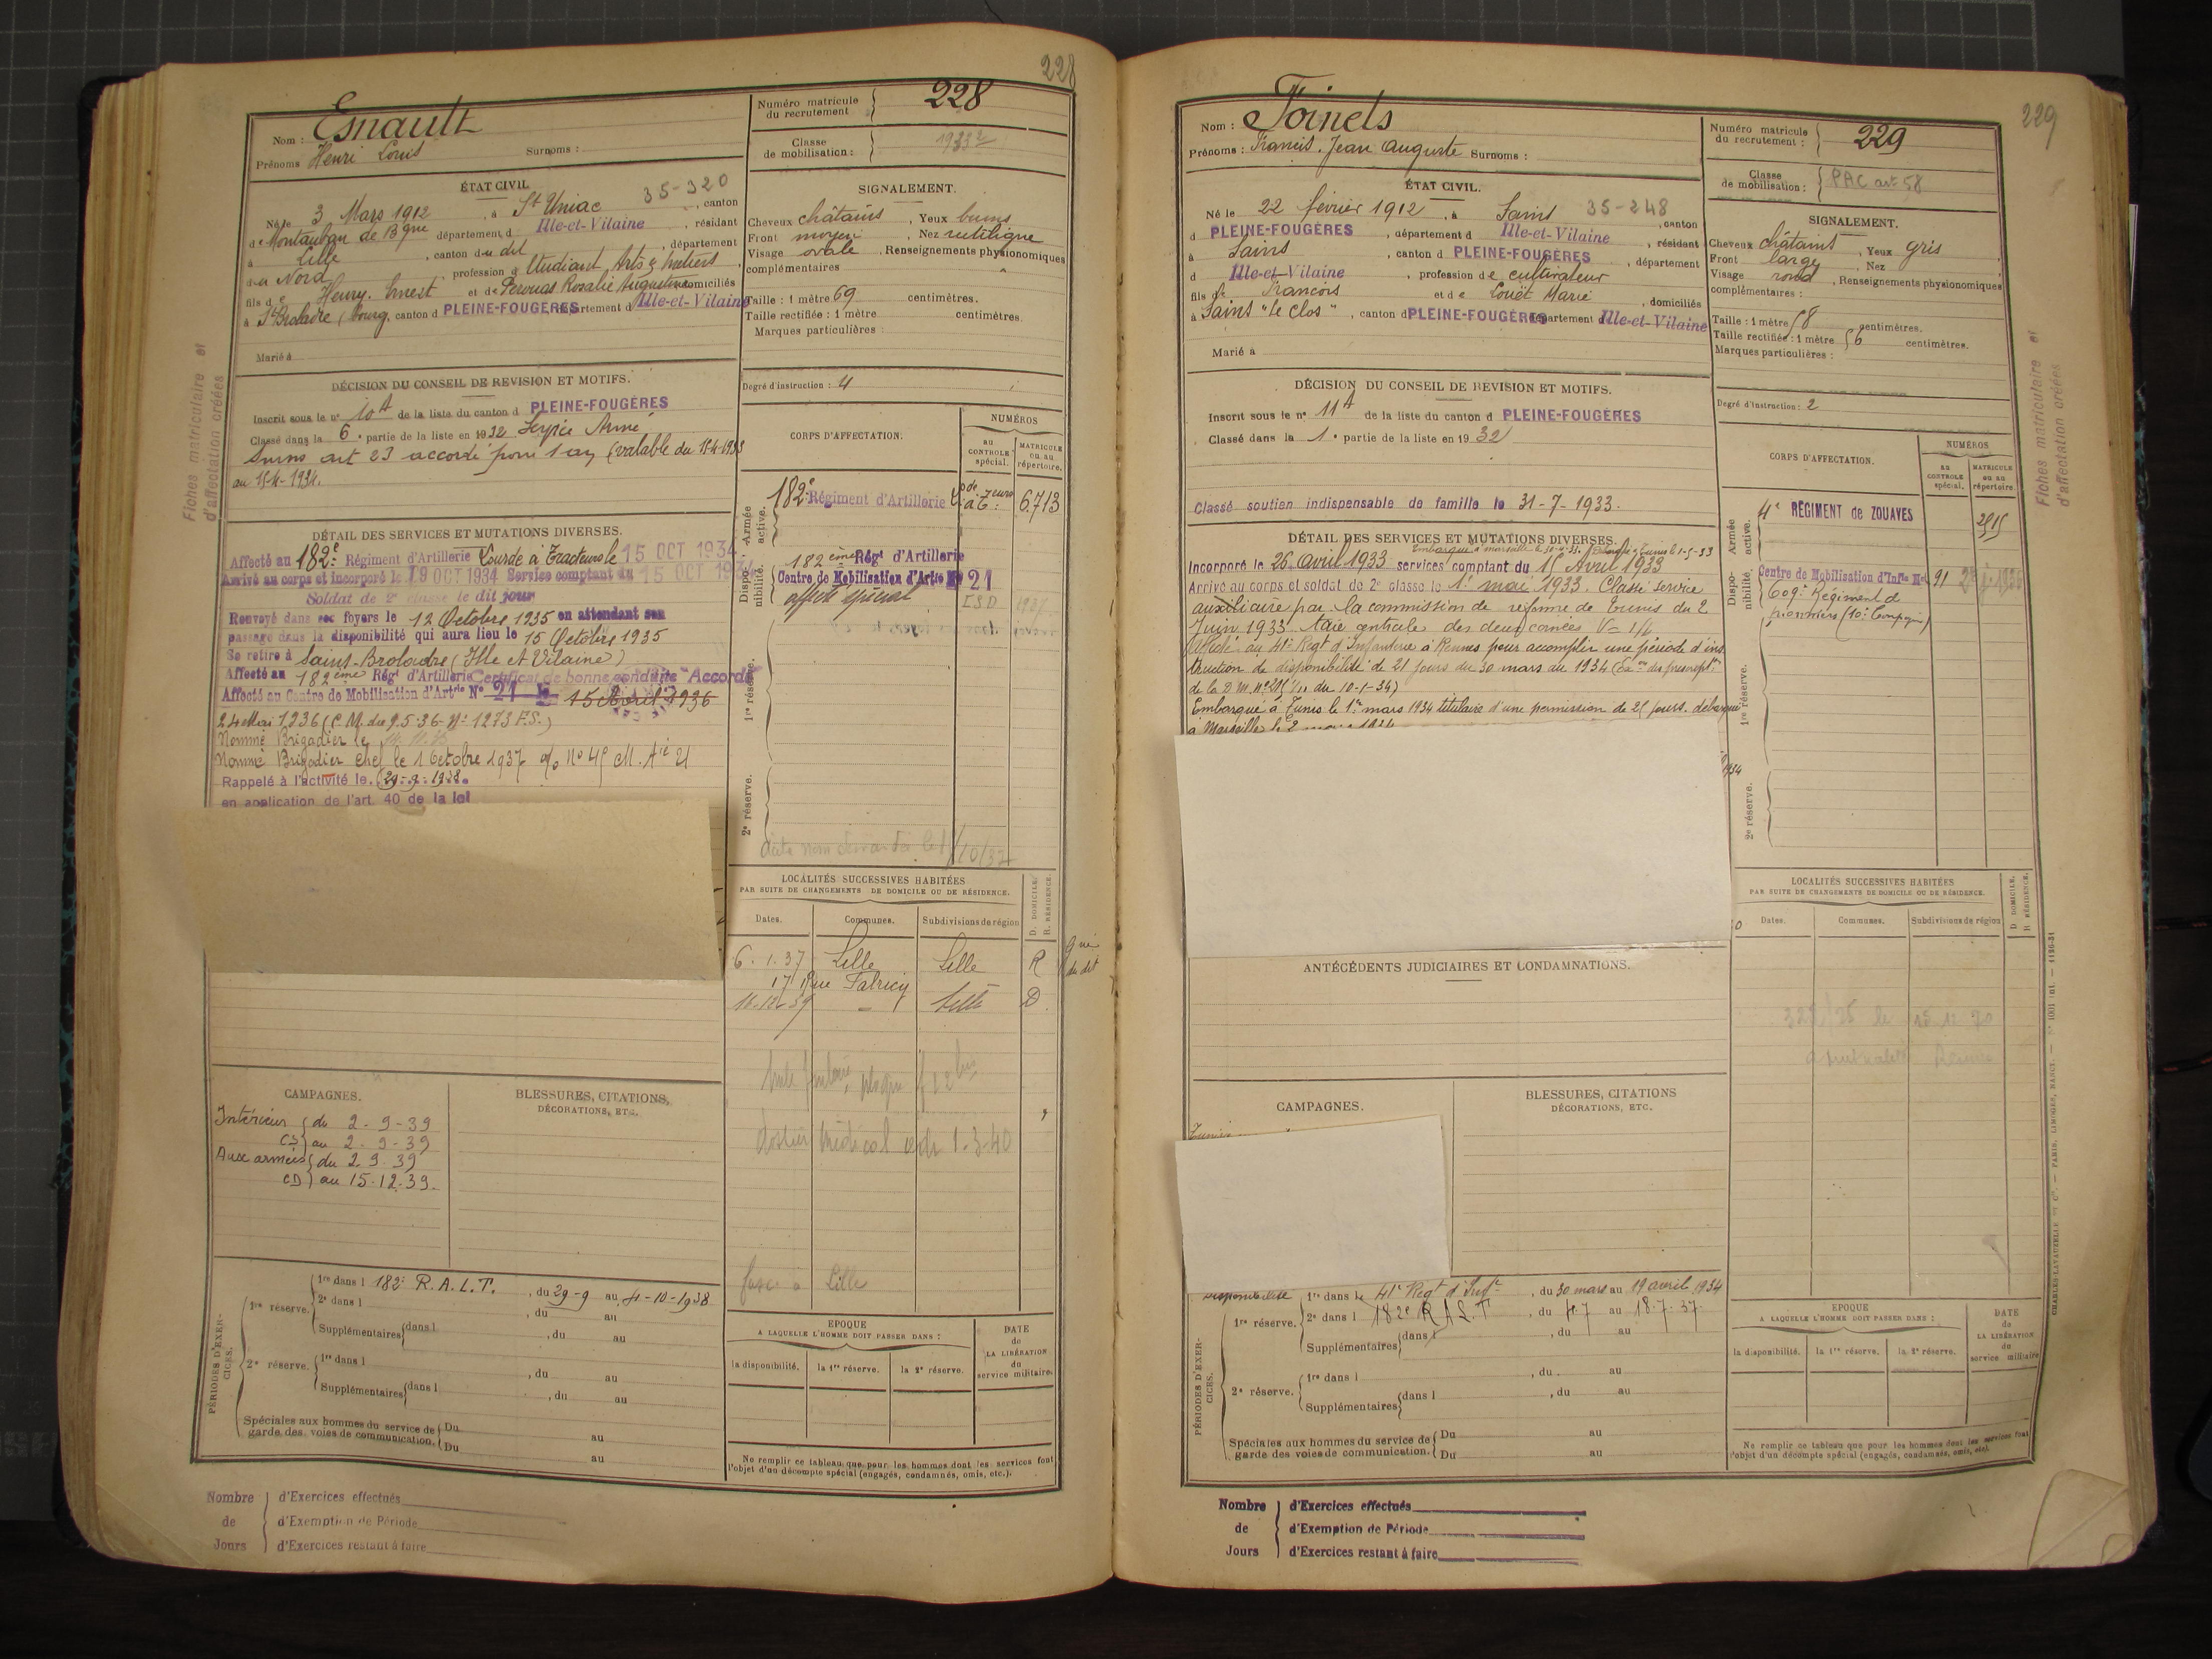 228
Nom : Esnault
Prénoms Henri Louis Surnoms :
Numéro matricule du recrutement 228
Classe de mobilisation : 1933²
ÉTAT CIVIL.
35-320
Né le 3 Mars 1912, à St Uniac, canton
de Montauban de Bgne département d Ille-et-Vilaine, résidant
à Lille, canton du dit, département
du Nord, profession d' Etudiant Arts & Métiers
fils de Henry. Ernest et de Perouas Rosalie Augustine domiciliés
à St Broladre (bourg, canton d PLEINE-FOUGÈRES, département d Ille-et-Vilaine
Marié à
SIGNALEMENT.
Cheveux châtains, Yeux bruns
Front moyen, Nez rectiligne
Visage ovale. Renseignements physionomiques
complémentaires
Taille : 1 mètre 69 centimètres.
Taille rectifiée : 1 mètre centimètres.
Marques particulières :
Degré d'instruction : 4
DÉCISION DU CONSEIL DE REVISION ET MOTIFS.
Inscrit sous le n° 10A de la liste du canton d PLEINE-FOUGÈRES
Classé dans la 6e partie de la liste en 1932 Service Armé
Sursis art 23 accordé pour 1 an (valable du 15-4-1933
au 15-4-1934.
Fiches matriculaire et
d'affectation créées
DÉTAIL DES SERVICES ET MUTATIONS DIVERSES.
Affecté au 182e Régiment d'Artillerie Lourde à Tracteurs le 15 OCT 1934
Arrivé au corps et incorporé le 19 OCT 1934 Service comptant du 15 OCT 1934
Soldat de 2e classe le dit jour
Renvoyé dans ses foyers le 12 Octobre 1935 en attendant son
passage dans la disponibilité qui aura lieu le 15 Octobre 1935
Se retire à Saint-Broladre (Ille et Vilaine)
Affecté au 182ème Rég^t d'Artillerie Certificat de bonne conduite "Accordé"
Affecté au Centre de Mobilisation d'Art^rie N° 21 15 Avril 1936
24 Mai 1936 (C.M. du 9.5.36 N° 1273 F.S.)
Nommé Brigadier le
Nommé Brigadier chef le 1 Octobre 1937 o/o No 45 CM. A^ie 21
Rappelé à l'activité le (29-9-1938.
en application de l'art. 40 de la loi
CORPS D'AFFECTATION.
NUMÉROS
AU CONTROLE spécial.
MATRICULE ou au répertoire.
Armée active.
182e Régiment d'Artillerie 6.713
Disponibilité.
182ème Rég^t d'Artillerie
Centre de Mobilisation d'Art^ie N° 21
affecté spécial
1re réserve.
2e réserve.
LOCALITÉS SUCCESSIVES HABITÉES
PAR SUITE DE CHANGEMENTS DE DOMICILE OU DE RÉSIDENCE.
D. DOMICILE.
R. RÉSIDENCE.
Dates. Communes. Subdivisions de région
6.1.37 Lille Lille R
17 Rue Fabricy
16-12-39 - Lille D
dossier médical 1-3-40
Lille
CAMPAGNES.
Intérieur { du 2-9-39
CS } au 2-9-39
Aux armées { du 2.9.39
CD } au 15-12-39
BLESSURES, CITATIONS,
DÉCORATIONS, ETC.
PÉRIODES D'EXERCICES.
1re réserve. 1re dans l 182e R.A.L.T., du 29-9 au 4-10-1938
2e dans l, du au
Supplémentaires dans l, du au
2e réserve. 1re dans l, du au
Supplémentaires dans l, du au
Spéciales aux hommes du service de garde des voies de communication. Du au
Du au
EPOQUE
A LAQUELLE L'HOMME DOIT PASSER DANS :
la disponibilité. la 1re réserve. la 2e réserve.
DATE de LA LIBÉRATION du service militaire.
Ne remplir ce tableau que pour les hommes dont les services font
l'objet d'un décompte spécial (engagés, condamnés, omis, etc.).
Nombre d'Exercices effectués
de d'Exemption de Période
Jours d'Exercices restant à faire
229
Nom : Foinels
Prénoms : Francis. Jean Auguste Surnoms :
Numéro matricule du recrutement : 229
Classe de mobilisation : PAC art. 58
ÉTAT CIVIL.
Né le 22 février 1912, à Sains 35-248, canton
d PLEINE-FOUGÈRES, département d Ille-et-Vilaine, résidant
à Sains, canton d PLEINE-FOUGÈRES, département
d Ille-et-Vilaine, profession de cultivateur
fils de François et de Louët Marie, domiciliés
à Sains "le Clos", canton d PLEINE-FOUGÈRES département d Ille-et-Vilaine
Marié à
SIGNALEMENT.
Cheveux châtains, Yeux gris
Front large, Nez
Visage rond, Renseignements physionomiques
complémentaires :
Taille : 1 mètre 58 centimètres.
Taille rectifiée : 1 mètre 56 centimètres.
Marques particulières :
Degré d'instruction : 2
DÉCISION DU CONSEIL DE REVISION ET MOTIFS.
Inscrit sous le n° 11A de la liste du canton d PLEINE-FOUGÈRES
Classé dans la 1e partie de la liste en 1932
Classé soutien indispensable de famille le 31-7-1933.
DÉTAIL DES SERVICES ET MUTATIONS DIVERSES.
Embarqué à Marseille le 30-4-33. Débarqué à Tunis le 1-5-33
Incorporé le 26 avril 1933 services comptant du 15 Avril 1933
Arrivé au corps et soldat de 2e classe le 1er mai 1933. Classé service
auxiliaire par la commission de réforme de Tunis du 2
Juin 1933. taie centrale des deux cornées V = 1/4
Affecté au 41e Regt d'Infanterie à Rennes pour accomplir une période d'ins
truction de disponibilité de 21 jours du 30 mars du 1934 (Ex^on des prescript^ons
de la D.M. n° 215 1/11 du 10-1-34)
Embarqué à Tunis le 1er mars 1934 titulaire d'une permission de 25 jours. débarqué
à Marseille le 2 mars 1934
CORPS D'AFFECTATION.
NUMÉROS
AU CONTROLE spécial.
MATRICULE ou au répertoire.
Armée active.
4e RÉGIMENT de ZOUAVES 2515
Disponibilité.
Centre de Mobilisation d'Inf^ie N° 91
609e Régiment d
pionniers (10e Compagnie)
1re réserve.
2e réserve.
Fiches matriculaire et
d'affectation créées
LOCALITÉS SUCCESSIVES HABITÉES
PAR SUITE DE CHANGEMENTS DE DOMICILE OU DE RÉSIDENCE.
D. DOMICILE.
R. RÉSIDENCE.
Dates. Communes. Subdivisions de région
ANTÉCÉDENTS JUDICIAIRES ET CONDAMNATIONS.
CAMPAGNES.
Tunisie
BLESSURES, CITATIONS
DÉCORATIONS, ETC.
PÉRIODES D'EXERCICES.
Disponibilité 1re dans le 41e Regt d'Inf^ie, du 30 mars au 19 avril 1934
1re réserve. 2e dans l 182e R.A.L.T, du 4.7 au 18.7.37
Supplémentaires dans l, du au
2e réserve. 1re dans l, du au
Supplémentaires dans l, du au
Spéciales aux hommes du service de garde des voies de communication. Du au
Du au
EPOQUE
A LAQUELLE L'HOMME DOIT PASSER DANS :
la disponibilité. la 1re réserve. la 2e réserve.
DATE de LA LIBÉRATION du service militaire
Ne remplir ce tableau que pour les hommes dont les services font
l'objet d'un décompte spécial (engagés, condamnés, omis, etc).
Nombre d'Exercices effectués
de d'Exemption de Période
Jours d'Exercices restant à faire